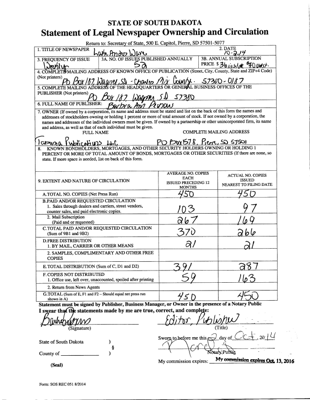 STATE OF SOUTH DAKOTA
Statement of Legal Newspaper Ownership and Circulation
Return to: Secretary of State, 500 E. Capitol, Pierre, SD 57501-5077
1. TITLE OF NEWSPAPER
2. DATE
3. FREQUENCY OF ISSUE
3A. NO. OF ISSUES PUBLISHED ANNUALLY
3B. ANNUAL SUBSCRIPTION
PRICE $
Weekly
52
4. COMPLETE MAILING ADDRESS OF KNOWN OFFICE OF PUBLICATION (Street, City, County, State and ZIP+4 Code)
(Not printers)
PO Box 187 Wagner, SD
57380-0187
5. COMPLETE MAILING ADDRESS OF THE HEADQUARTERS OR GENERAL BUSINESS OFFICES OF THE
PUBLISHER (Not printers)
PO Box 187 Wagner, SD 57380
6. FULL NAME OF PUBLISHER:
Barbara
7. OWNER (If owned by a corporation, its name and address must be stated and list on the back of this form the names and
addresses of stockholders owning or holding 1 percent or more of total amount of stock. If not owned by a corporation, the
names and addresses of the individual owners must be given. If owned by a partnership or other unincorporated firm, its name
and address, as well as that of each individual must be given.
FULL NAME
COMPLETE MAILING ADDRESS
8. KNOWN BONDHOLDERS, MORTGAGES, AND OTHER SECURITY HOLDERS OWNING OR HOLDING 1
PERCENT OR MORE OF TOTAL AMOUNT OF BONDS, MORTGAGES OR OTHER SECURITIES (If there are none, so
state. If more space is needed, list on back of this form.
9. EXTENT AND NATURE OF CIRCULATION
AVERAGE NO. COPIES
EACH
ISSUED PRECEDING 12
MONTHS
ACTUAL NO. COPIES
ISSUED
NEAREST TO FILING DATE
A. TOTAL NO. COPIES (Net Press Run)
450
450
B. PAID AND/OR REQUESTED CIRCULATION
1. Sales through dealers and carriers, street vendors,
counter sales, and paid electronic copies.
103
97
2. Mail Subscription
(Paid and or requested)
267
169
C. TOTAL PAID AND/OR REQUESTED CIRCULATION
(Sum of 9B1 and 9B2)
370
266
D. FREE DISTRIBUTION
1. BY MAIL, CARRIER OR OTHER MEANS
21
21
2. SAMPLES, COMPLIMENTARY AND OTHER FREE
COPIES
E. TOTAL DISTRIBUTION (Sum of C, D1 and D2)
391
287
F. COPIES NOT DISTRIBUTED
1. Office use, left over, unaccounted, spoiled after printing
59
163
2. Return from News Agents
G. TOTAL (Sum of E, F1 and F2 – Should equal net press run
shown in A)
450
450
Statement must be signed by Publisher, Business Manager, or Owner in the presence of a Notary Public
I swear that the statements made by me are true, correct, and complete:
Editor, Publisher
(Signature)
(Title)
State of South Dakota )
§
County of )
Sworn to before me this day of Oct, 2014
Notary Public
(Seal)
My commission expires: My commission expires Oct. 13, 2016